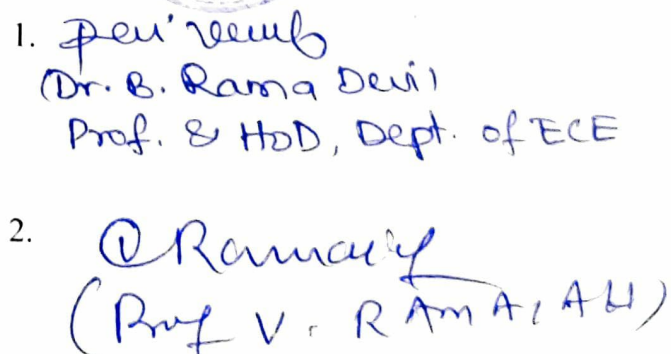 1.
(Dr. B. Rama Devi)
Prof. & HoD, Dept. of ECE
2.
(Prof V. RAMAIAH)